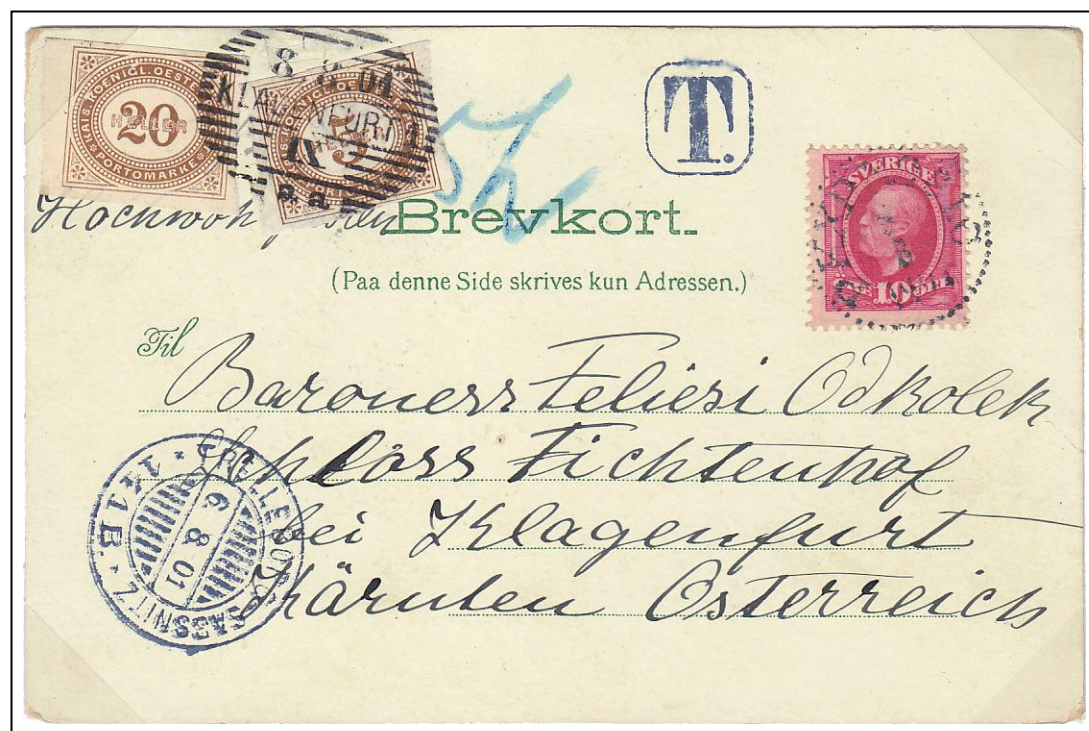 KAIS. KOENIGL. OESTERR. PORTOMARKE
20
HELLER
5
8 8 01
KLAGENFURT 1
T.
SVERIGE
10 ÖRE
Brevkort.
(Paa denne Side skrives kun Adressen.)
Til
Baroness Feliesi Odkolek
Schloss Fichtenhof
bei Klagenfurt
Kärnten Österreich
TRELLEBORG SASSNITZ
141 B.
6 8 01